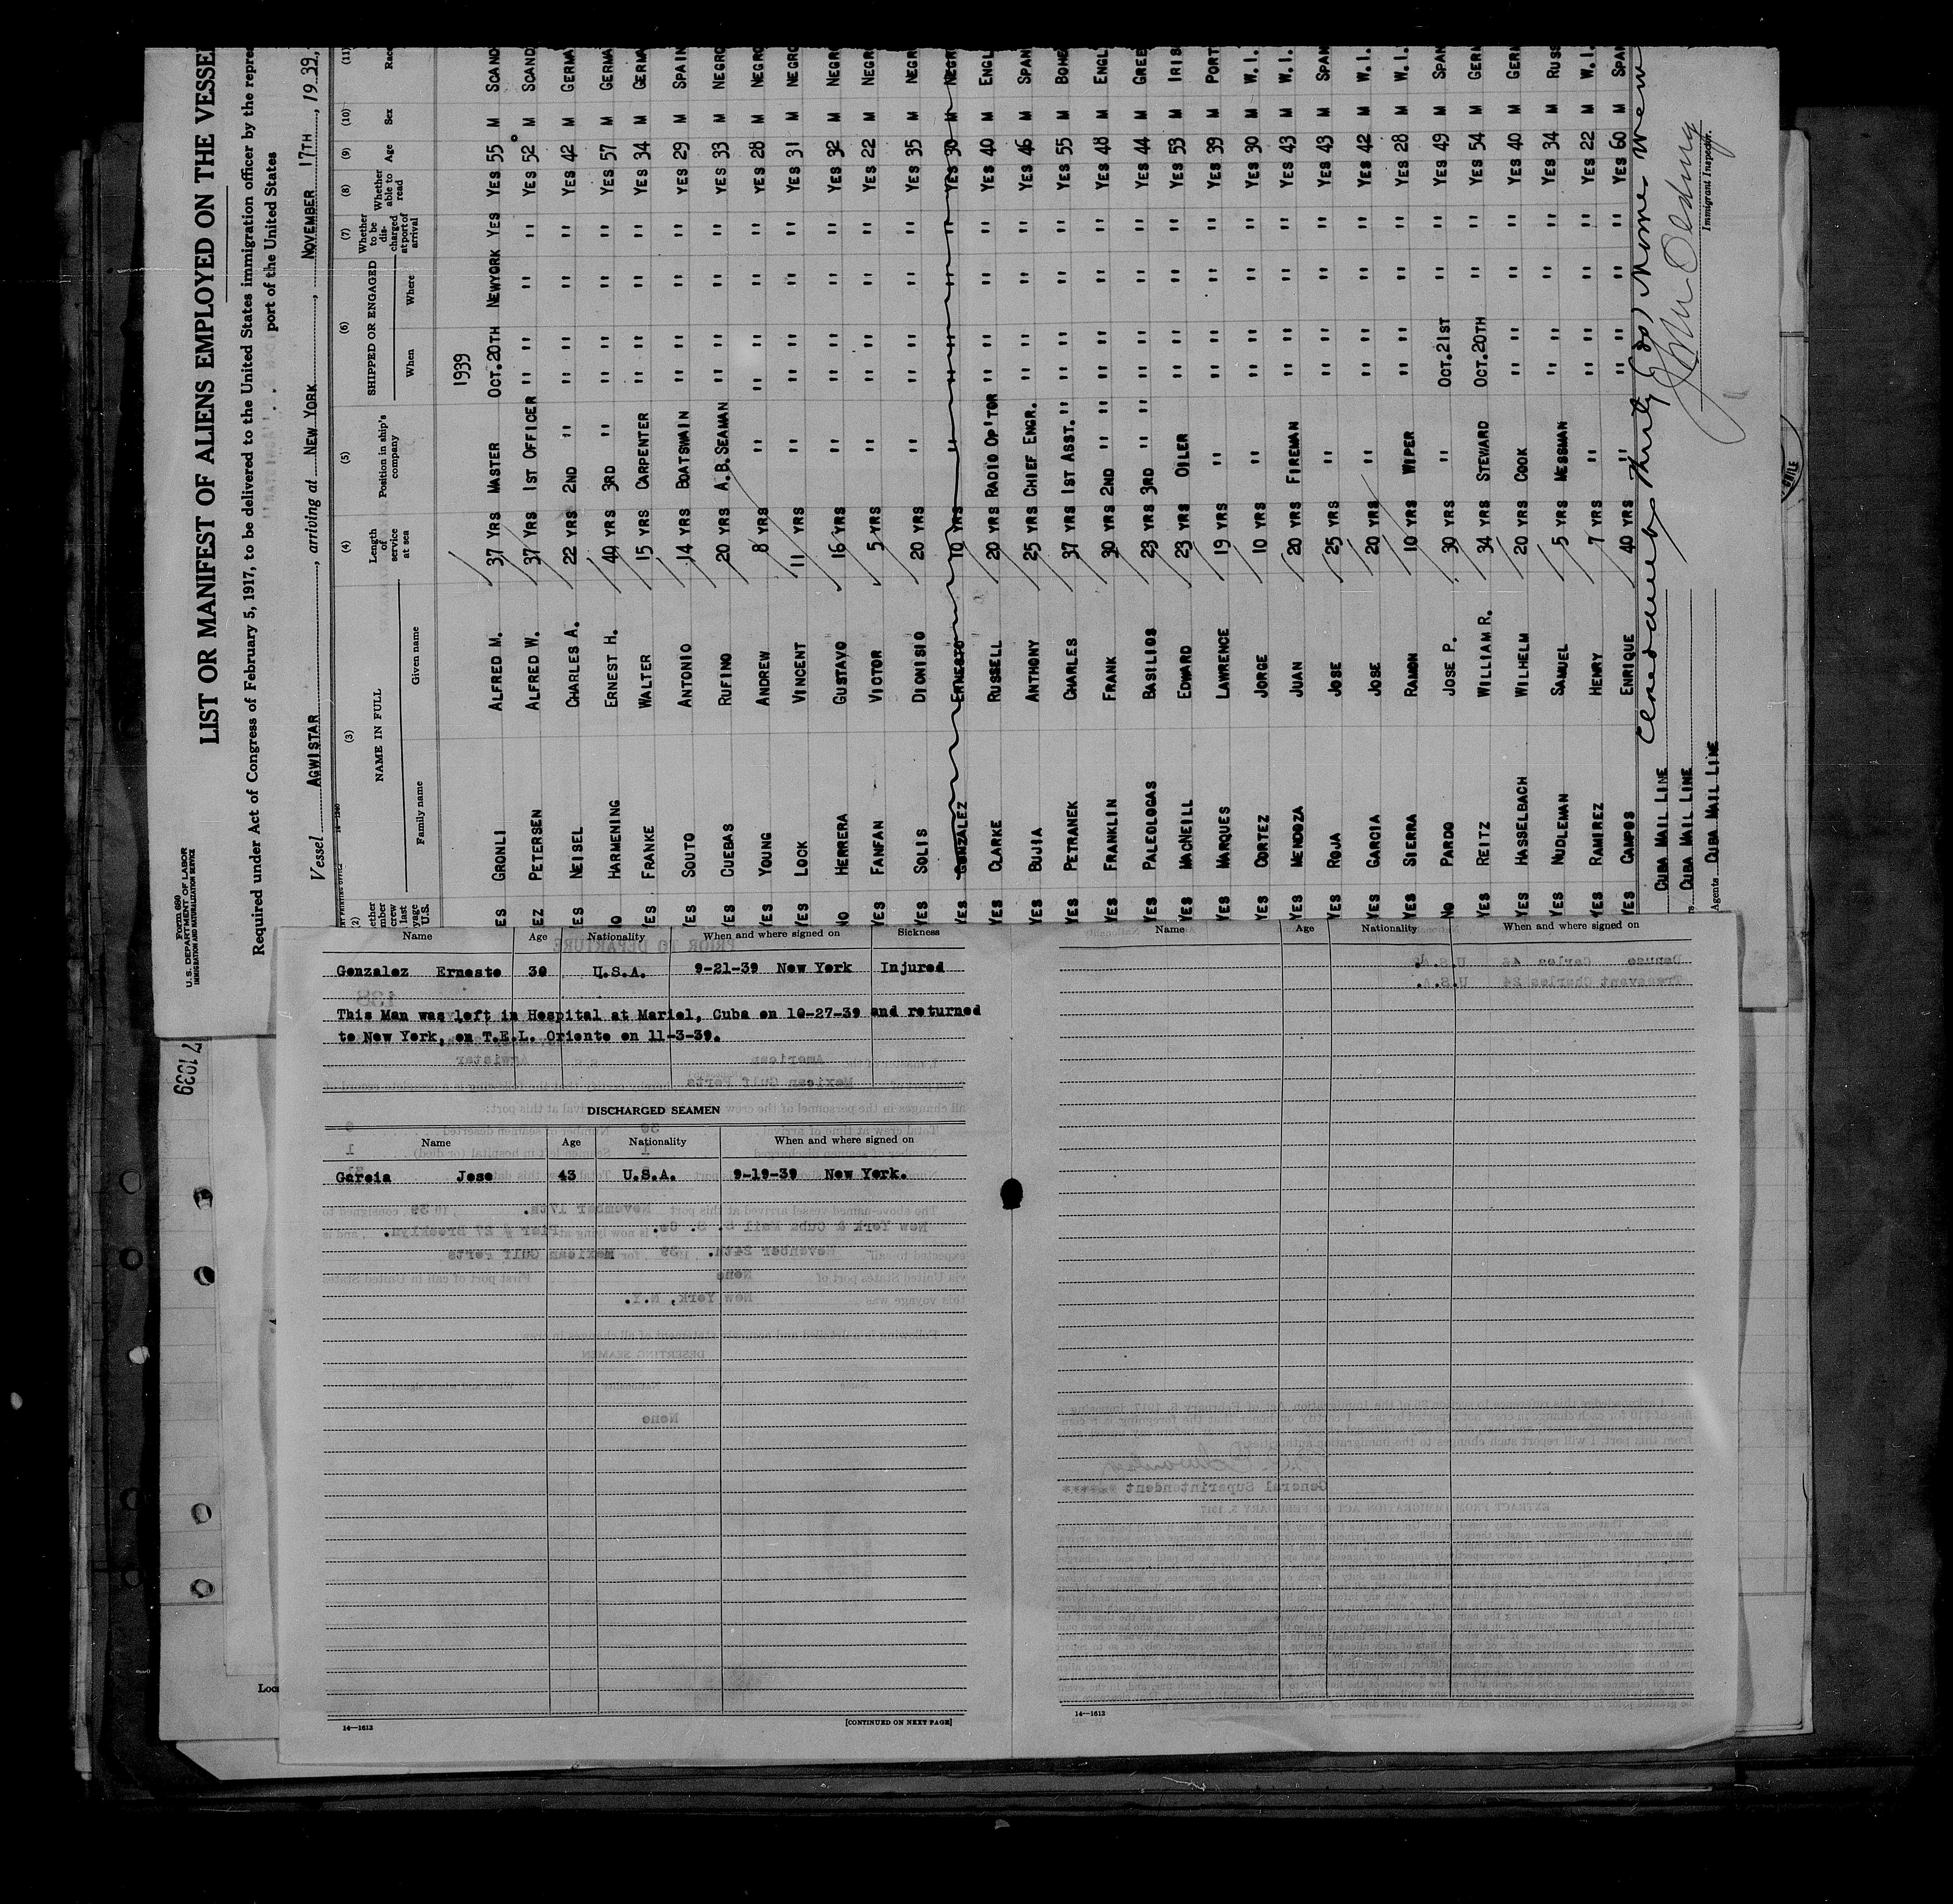 Form 680
U.S. DEPARTMENT OF LABOR
IMMIGRATION AND NATURALIZATION SERVICE
LIST OR MANIFEST OF ALIENS EMPLOYED ON THE VESSEL
Required under Act of Congress of February 5, 1917, to be delivered to the United States immigration officer by the repre
port of the United States
Vessel AGWISTAR, arriving at NEW YORK, NOVEMBER 17TH, 1939,
(2) (3) (4) (5) (6) (7) (8) (9) (10) (11)
NAME IN FULL Length of service at sea Position in ship's company SHIPPED OR ENGAGED Whether to be discharged at port of arrival Whether able to read Age Sex Race
Family name Given name When Where
1939
ES GRONLI ALFRED M. 37 YRS MASTER OCT.20TH NEWYORK YES YES 55 M SCAND
EZ PETERSEN ALFRED W. 37 YRS 1ST OFFICER " " " " YES 52 M SCAND
ES NEISEL CHARLES A. 22 YRS 2ND " " " " " YES 42 M GERMA
O HARMENING ERNEST H. 40 YRS 3RD " " " " " YES 57 M GERMA
YES FRANKE WALTER 15 YRS CARPENTER " " " " YES 34 M GERMA
YES SOUTO ANTONIO 14 YRS BOATSWAIN " " " " YES 29 M SPAIN
YES CUEBAS RUFINO 20 YRS A.B.SEAMAN " " " " YES 33 M NEGRO
YES YOUNG ANDREW 8 YRS " " " " " YES 28 M NEGRO
YES LOCK VINCENT 11 YRS " " " " " YES 31 M NEGRO
NO HERRERA GUSTAVO 16 YRS " " " " " YES 32 M NEGR
YES FANFAN VICTOR 5 YRS " " " " " YES 22 M NEGR
YES SOLIS DIONISIO 20 YRS " " " " " YES 35 M NEGR
YES GONZALEZ ERNESTO 10 YRS " " " " " YES 30 M NEGR
YES CLARKE RUSSELL 20 YRS RADIO OP'TOR " " " " YES 40 M ENGL
YES BUJIA ANTHONY 25 YRS CHIEF ENGR. " " " " YES 46 M SPAN
YES PETRANEK CHARLES 37 YRS 1ST ASST. " " " " " YES 55 M BOHE
YES FRANKLIN FRANK 30 YRS 2ND " " " " " " YES 48 M ENGL
YES PALEOLOGAS BASILIOS 23 YRS 3RD " " " " " " YES 44 M GREE
YES MACNEILL EDWARD 23 YRS OILER " " " " YES 53 M IRIS
YES MARQUES LAWRENCE 19 YRS " " " " " YES 39 M PORT
YES CORTEZ JORGE 10 YRS " " " " " YES 30 M W.I.
YES MENDOZA JUAN 20 YRS FIREMAN " " " " YES 43 M W.I.
YES ROJA JOSE 25 YRS " " " " " YES 43 M SPAN
YES GARCIA JOSE 20 YRS " " " " " YES 42 M W.I.
YES SIERRA RAMON 10 YRS WIPER " " " " YES 28 M W.I.
NO PARDO JOSE P. 30 YRS " OCT.21ST " " YES 49 M SPAN
YES REITZ WILLIAM R. 34 YRS STEWARD OCT.20TH " " YES 54 M GERM
YES HASSELBACH WILHELM 20 YRS COOK " " " " YES 40 M GERM
YES NUDLEMAN SAMUEL 5 YRS MESSMAN " " " " YES 34 M RUSS
YES RAMIREZ HENRY 7 YRS " " " " " YES 22 M W.I.
YES CAMPOS ENRIQUE 40 YRS " " " " " YES 60 M SPAN
CUBA MAIL LINE
CUBA MAIL LINE
Agents CUBA MAIL LINE
Immigrant Inspector.
Name Age Nationality When and where signed on Sickness
Gonzalez Ernesto 30 U.S.A. 9-21-39 New York Injured
This Man was left in Hospital at Mariel, Cuba on 10-27-39 and returned
to New York, on T.E.L. Oriente on 11-3-39.
DISCHARGED SEAMEN
Name Age Nationality When and where signed on
Garcia Jose 43 U.S.A. 9-19-39 New York.
14—1613 [CONTINUED ON NEXT PAGE]
Name Age Nationality When and where signed on
14—1613